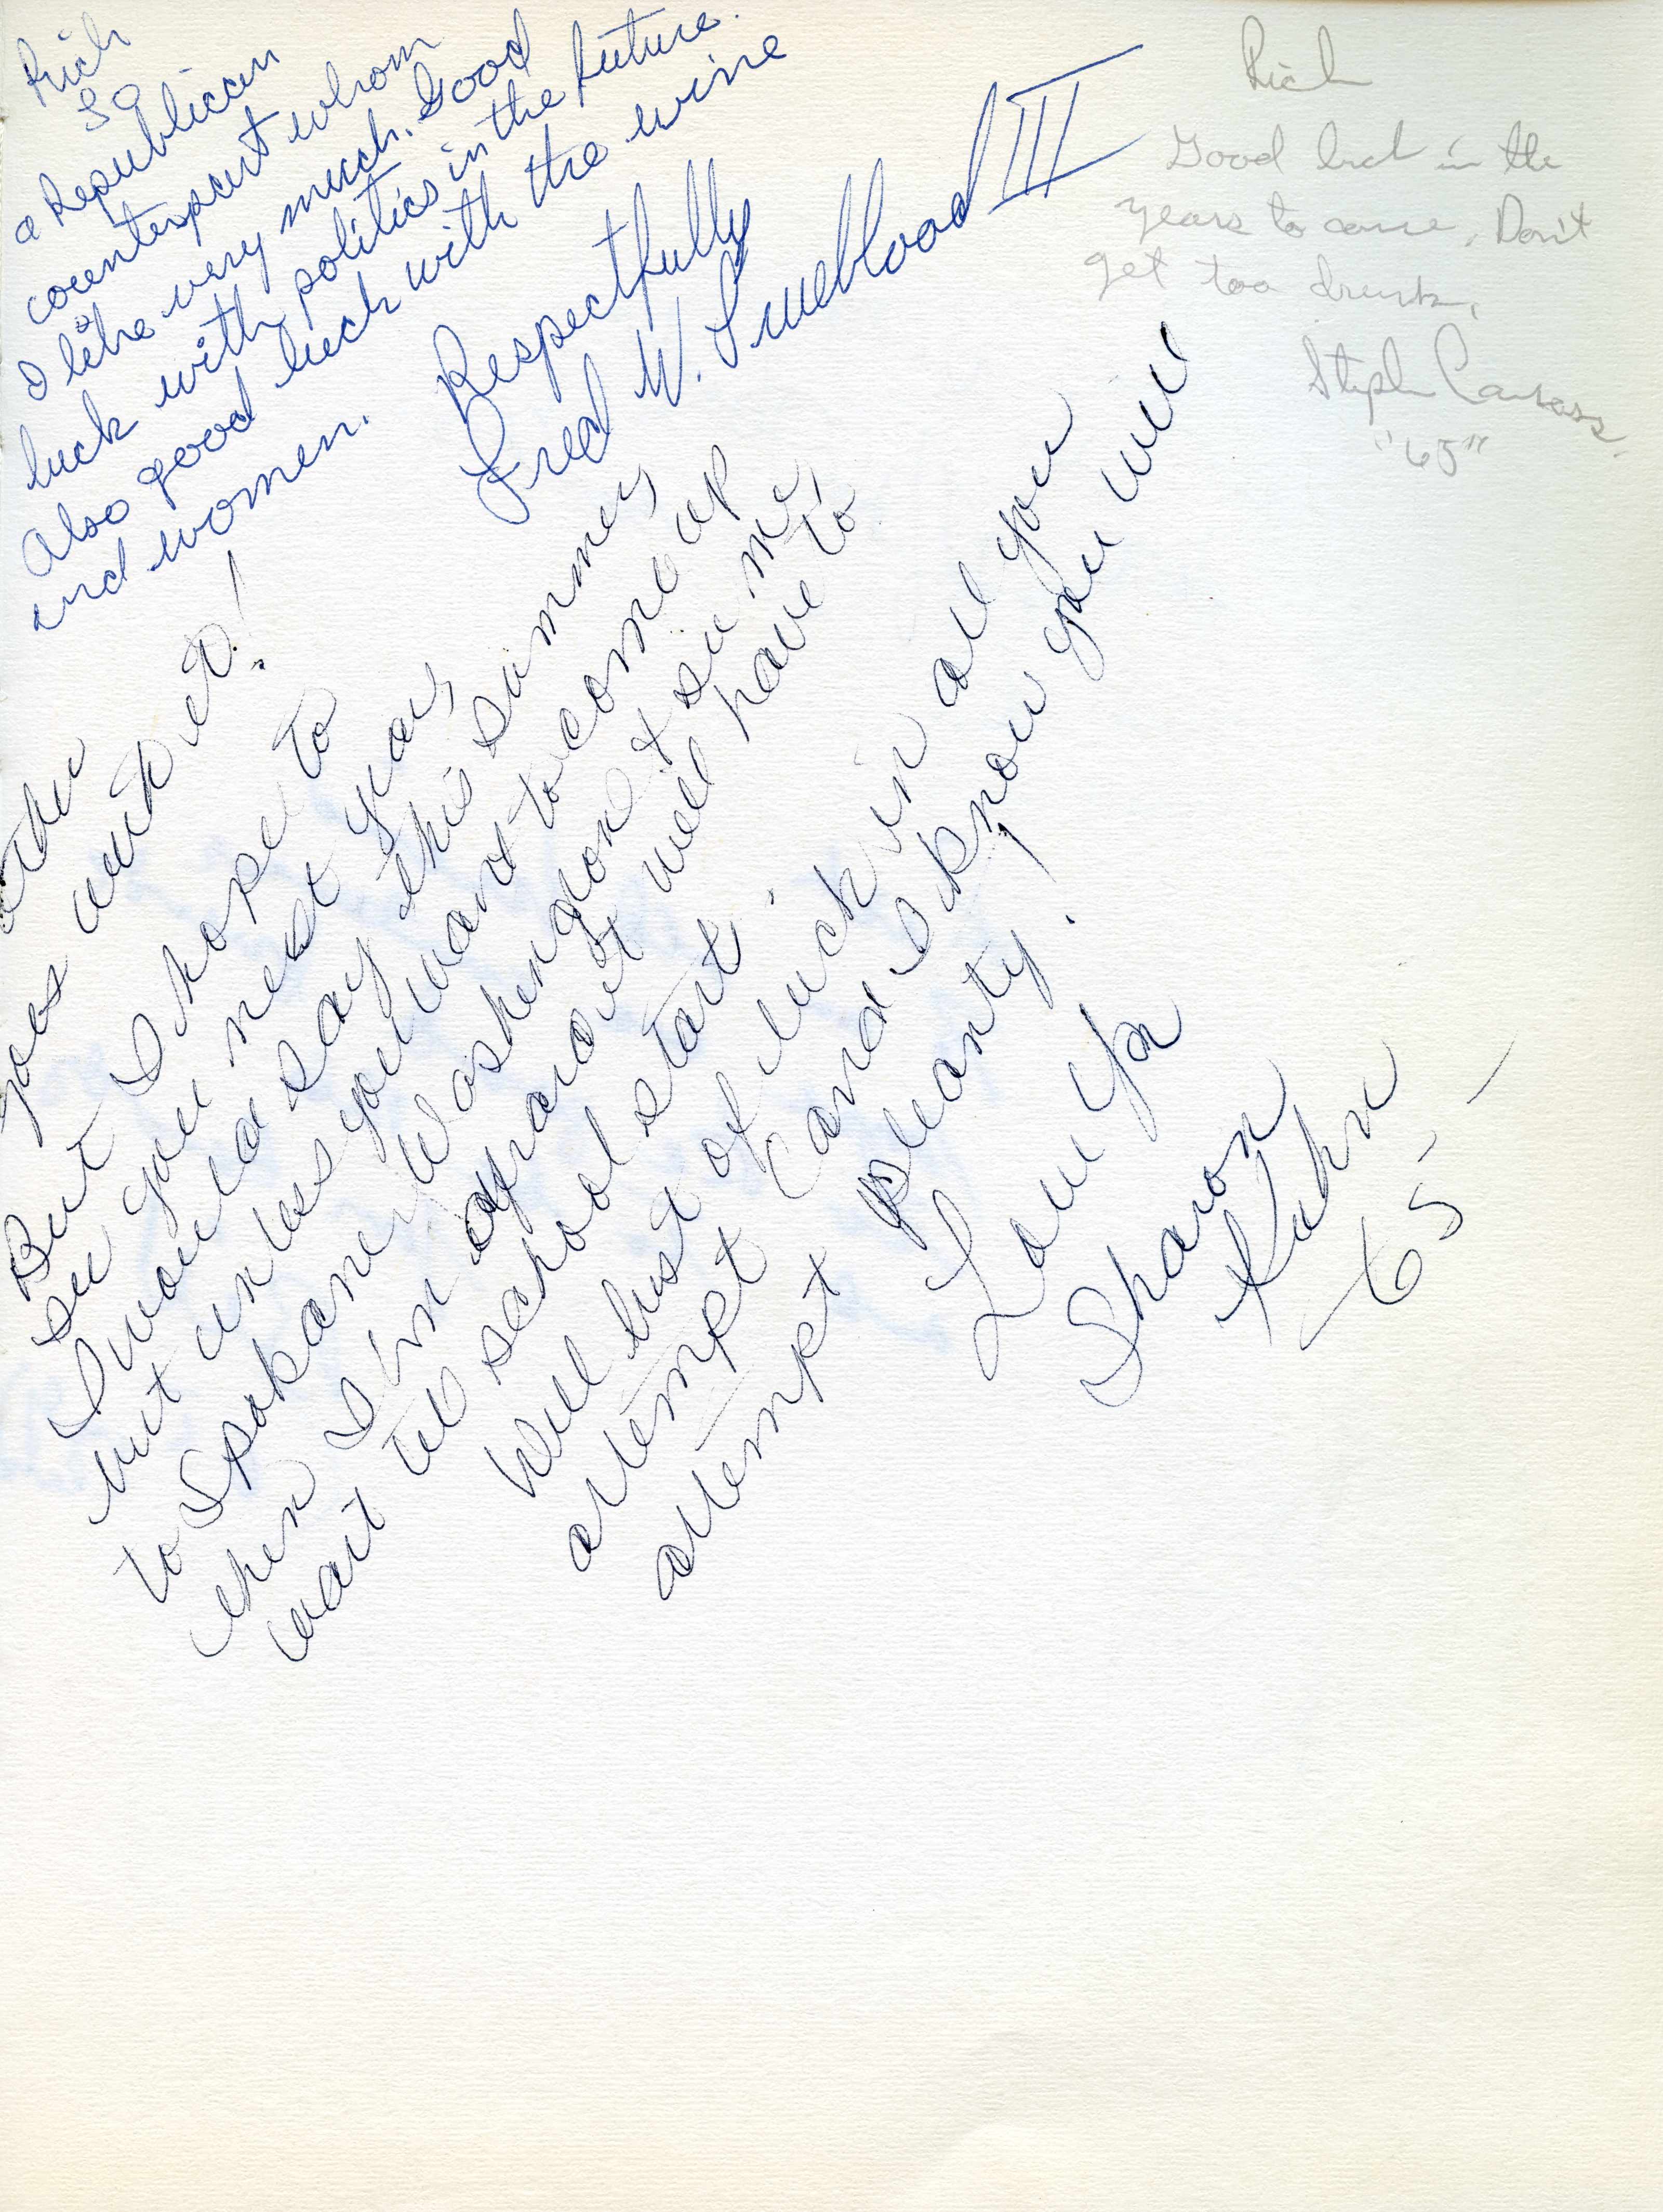 Rich
To
a Republican
counterpart whom
I like very much. Good
luck with politics in the future.
Also good luck with the wine
and women.
Respectfully
Fred W. Trueblood III
Rich
Good luck in the
years to come. Don't
get too drunk.
Stephen
"65"
goes with it!
But I hope to
see you next year,
I would say this summer,
but unless you want to come up
to Spokane, Washington & see me,
then I'm afraid it will have to
wait til school start.
Well best of luck in all you
attempt (and I know you will
attempt pleanty!)
Luv Ya
Sharon
Kuhn
65